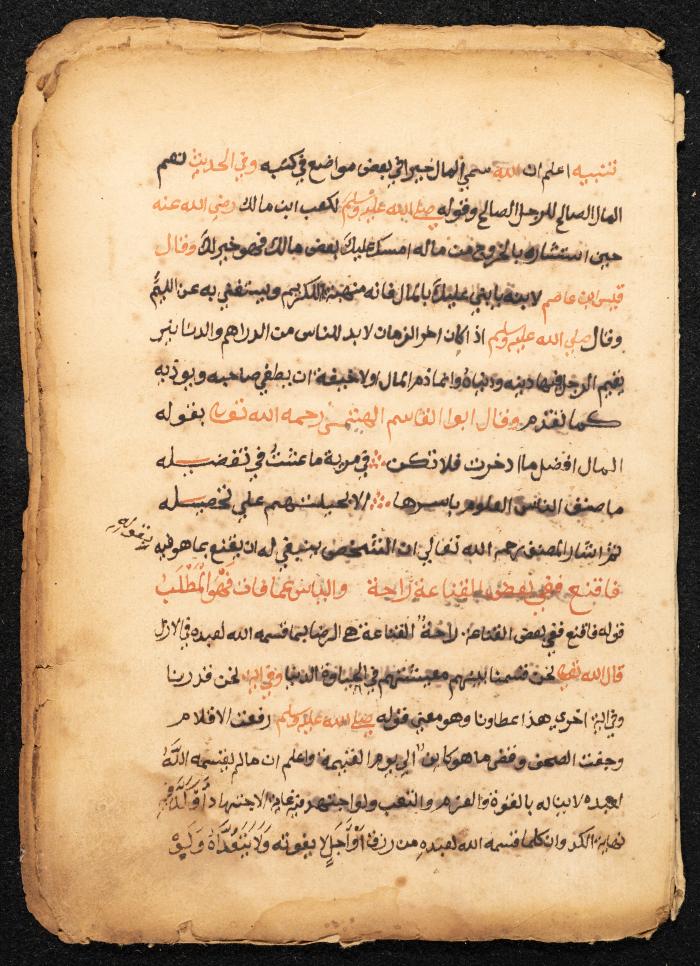 تنبيه اعلم ان الله سمي المال خيرا في بعض مواضع في كتبه وفي الحديث نعم
المال الصالح للرجل الصالح وقوله صلي الله عليه وسلم لكعب ابن مالك رضي الله عنه
حين استشاره بالخروج من ماله امسك عليك بعض مالك فهو خير لك وقال
قيس ابن عاصم لابنه يا بني عليك بالمال فانه منهبة للكريم ويستغني به عن اللئيم
وقال صلي الله عليه وسلم اذ اكان اخر الزمان لابد للناس من الدراهم والدنانير
يقيم الرجل فيها دينه ودنياه وانما ذم المال اولا خيفة ان يطغي صاحبه ويوذيه
كما تقدم وقال ابوا القاسم رحمه الله تعالي بقوله
المال افضل ما ادخرت فلا تكن في مرية ما عشت في تفضيله
ما صنف الناس العلوم باسرها الا لحيلتهم علي تحصيله
ثم اشار المصنف رحم الله تعالي ان الشخص ينبغي له ان يقنع بما هو فيه
بقوله
فاقنع ففي بعض القناعة راحة والياس عما فات فهو المطلب
قوله فاقنع ففي بعض القناعة راحة القناعة هي الرضا بما قسمه الله لعبده في الازل
قال الله تعالي نحن قسمنا بينهم معيشتهم في الحياوة الدنيا وفي اية نحن قدرنا
وفي اية اخري هذا عطاونا وهو معني قوله صلي الله عليه وسلم رفعت الاقلام
وجفت الصحف وقضي ما هو كاين الي يوم القيمة واعلم ان ما لم يقسمه الله
لعبده لا يناله بالقوة والعزم والتعب ولو اجتهد غاية الاجتهاد
نهاية الكد وان كلما قسمه الله لعبده من رزق او اجل لا يفوته ولا يتعداه